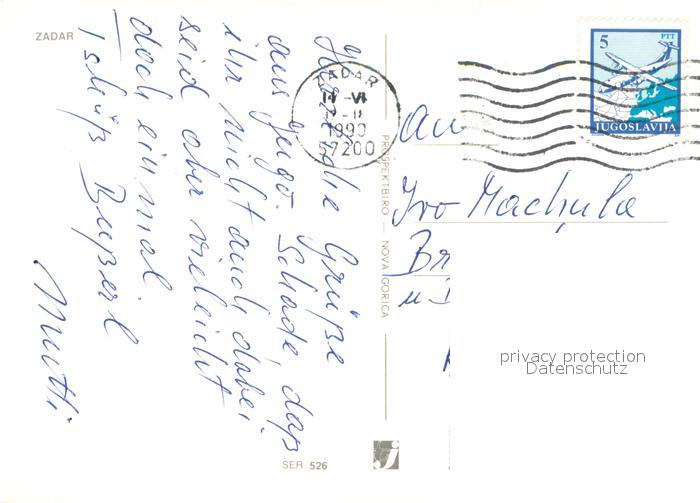 ZADAR
Herzliche Grüße
aus Jugo. Schade, daß
ihr nicht auch dabei
seid aber vieleicht
doch ein mal.
Tschüß Bußerl
Mutti
ZADAR
14 -VI
1990
57200
5
PTT
JUGOSLAVIJA
An
Ivo Machula
u
PROSPEKTBIRO — NOVA GORICA
SER. 526
privacy protection
Datenschutz